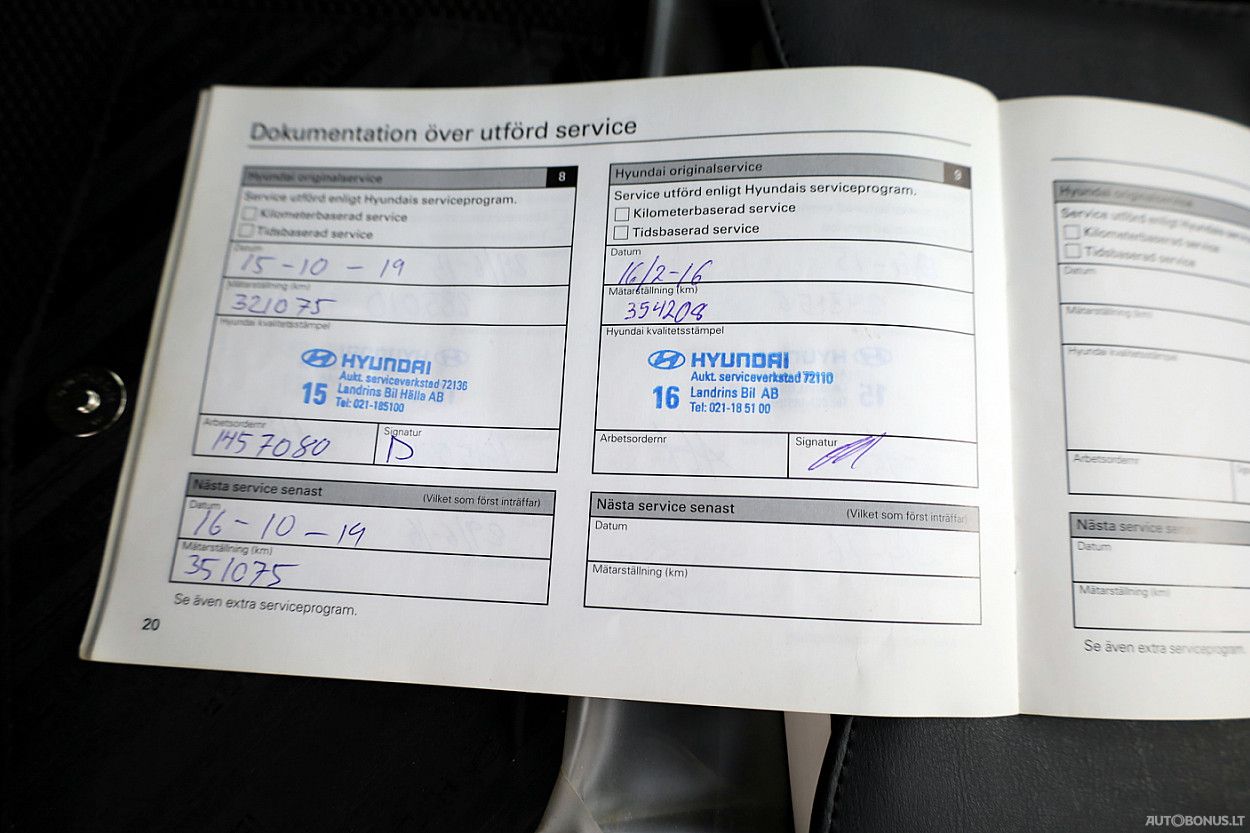 Dokumentation över utförd service
Hyundai originalservice 8
Service utförd enligt Hyundais serviceprogram.
Kilometerbaserad service
Tidsbaserad service
Datum
15-10-19
Mätarställning (km)
321075
Hyundai kvalitetsstämpel
HYUNDAI
Aukt. serviceverkstad 72136
15 Landrins Bil Hälla AB
Tel: 021-185100
Arbetsordernr
1457080
Signatur
Nästa service senast (Vilket som först inträffar)
Datum
16-10-19
Mätarställning (km)
351075
Se även extra serviceprogram.
20
Hyundai originalservice 9
Service utförd enligt Hyundais serviceprogram.
Kilometerbaserad service
Tidsbaserad service
Datum
16/2-16
Mätarställning (km)
354208
Hyundai kvalitetsstämpel
HYUNDAI
Aukt. serviceverkstad 72110
16 Landrins Bil AB
Tel: 021-18 51 00
Arbetsordernr
Signatur
Nästa service senast (Vilket som först inträffar)
Datum
Mätarställning (km)
Hyundai originalservice
Service utförd enligt Hyundais
Kilometerbaserad service
Tidsbaserad service
Datum
Mätarställning (km)
Hyundai kvalitetsstämpel
Arbetsordernr
Nästa service
Datum
Mätarställning (km)
Se även extra serviceprogram.
AUTOBONUS.LT